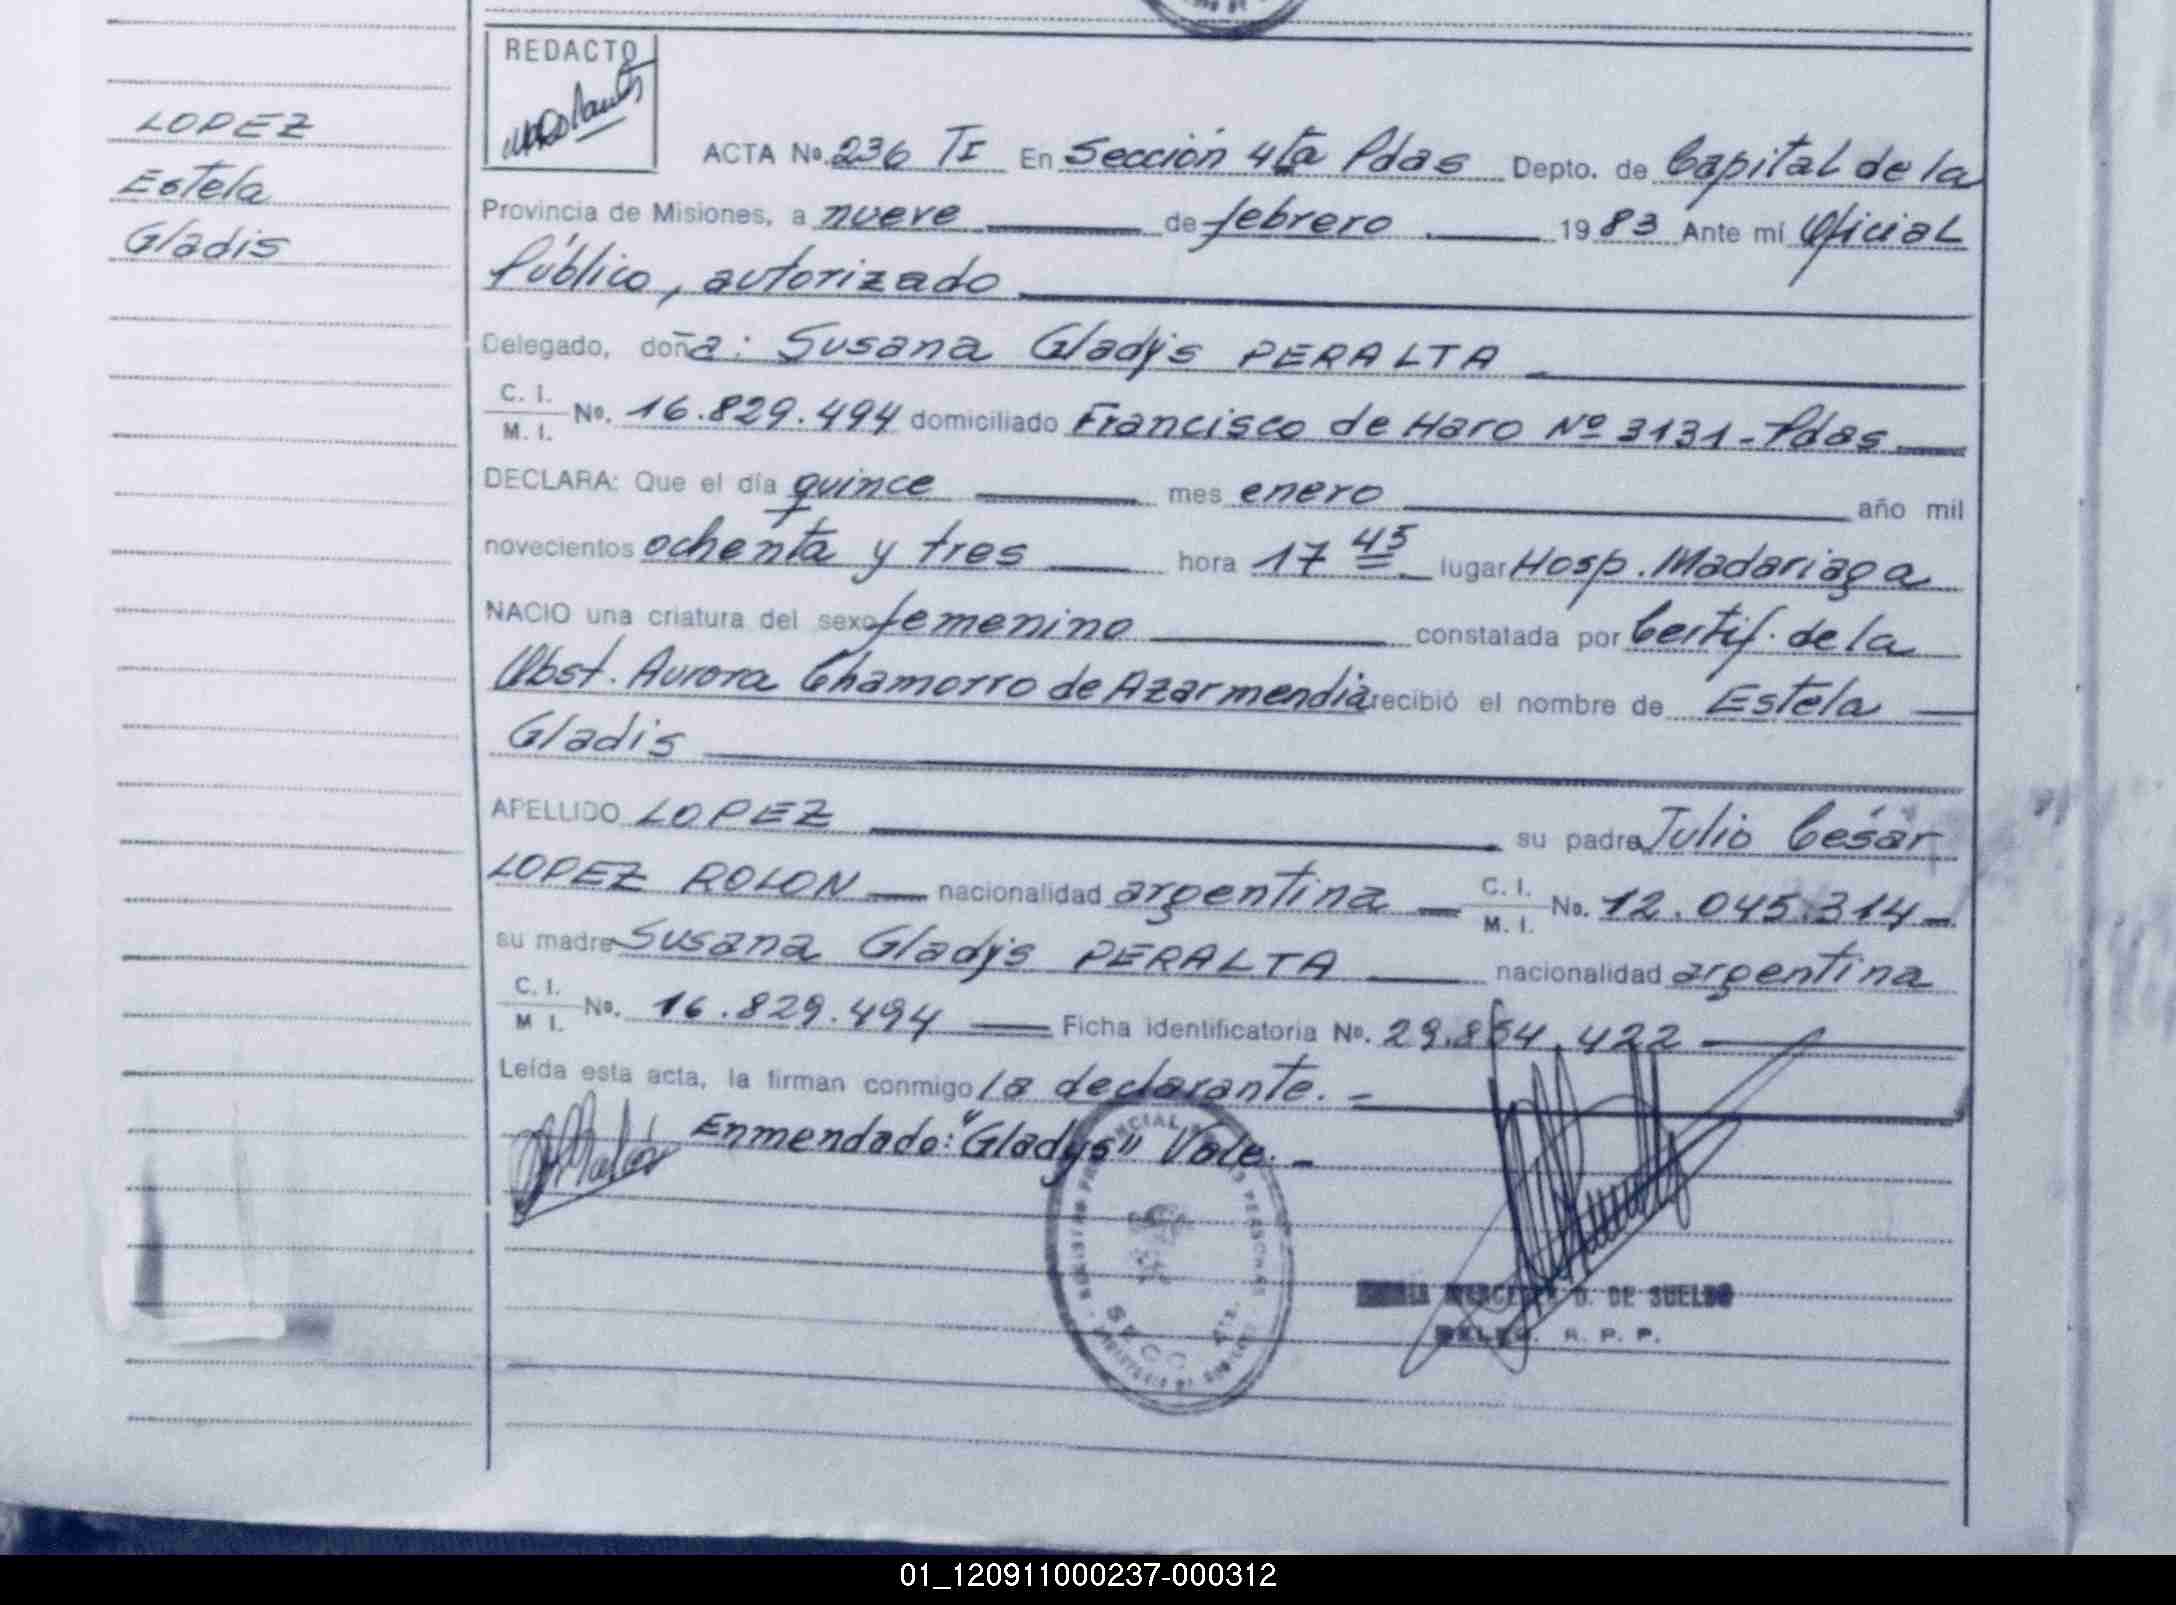 REDACTO
LOPEZ
Estela
Gladis
ACTA No. 236 TI En Sección 4ta Pdas Depto. de Capital de la
Provincia de Misiones, a nueve de febrero 1983 Ante mí Oficial
Público, autorizado
Delegado, doña: Susana Gladys PERALTA
C. I.
M. I. No. 16.829.494 domiciliado Francisco de Haro Nº 3131 - Pdas
DECLARA: Que el día quince mes enero año mil
novecientos ochenta y tres hora 17 45 lugar Hosp. Madariaga
NACIO una criatura del sexo femenino constatada por Certif. de la
Obst. Aurora Chamorro de Azarmendia recibió el nombre de Estela
Gladis
APELLIDO LOPEZ su padre Julio César
LOPEZ ROLON nacionalidad argentina C. I. M. I. No. 12.045.314
su madre Susana Gladys PERALTA nacionalidad argentina
C. I.
M. I. No. 16.829.494 Ficha identificatoria No. 29.864.422
Leída esta acta, la firman conmigo la declarante.
Enmendado: "Gladys" Vale.
DE SUELDO
R. P. P.
01_120911000237-000312